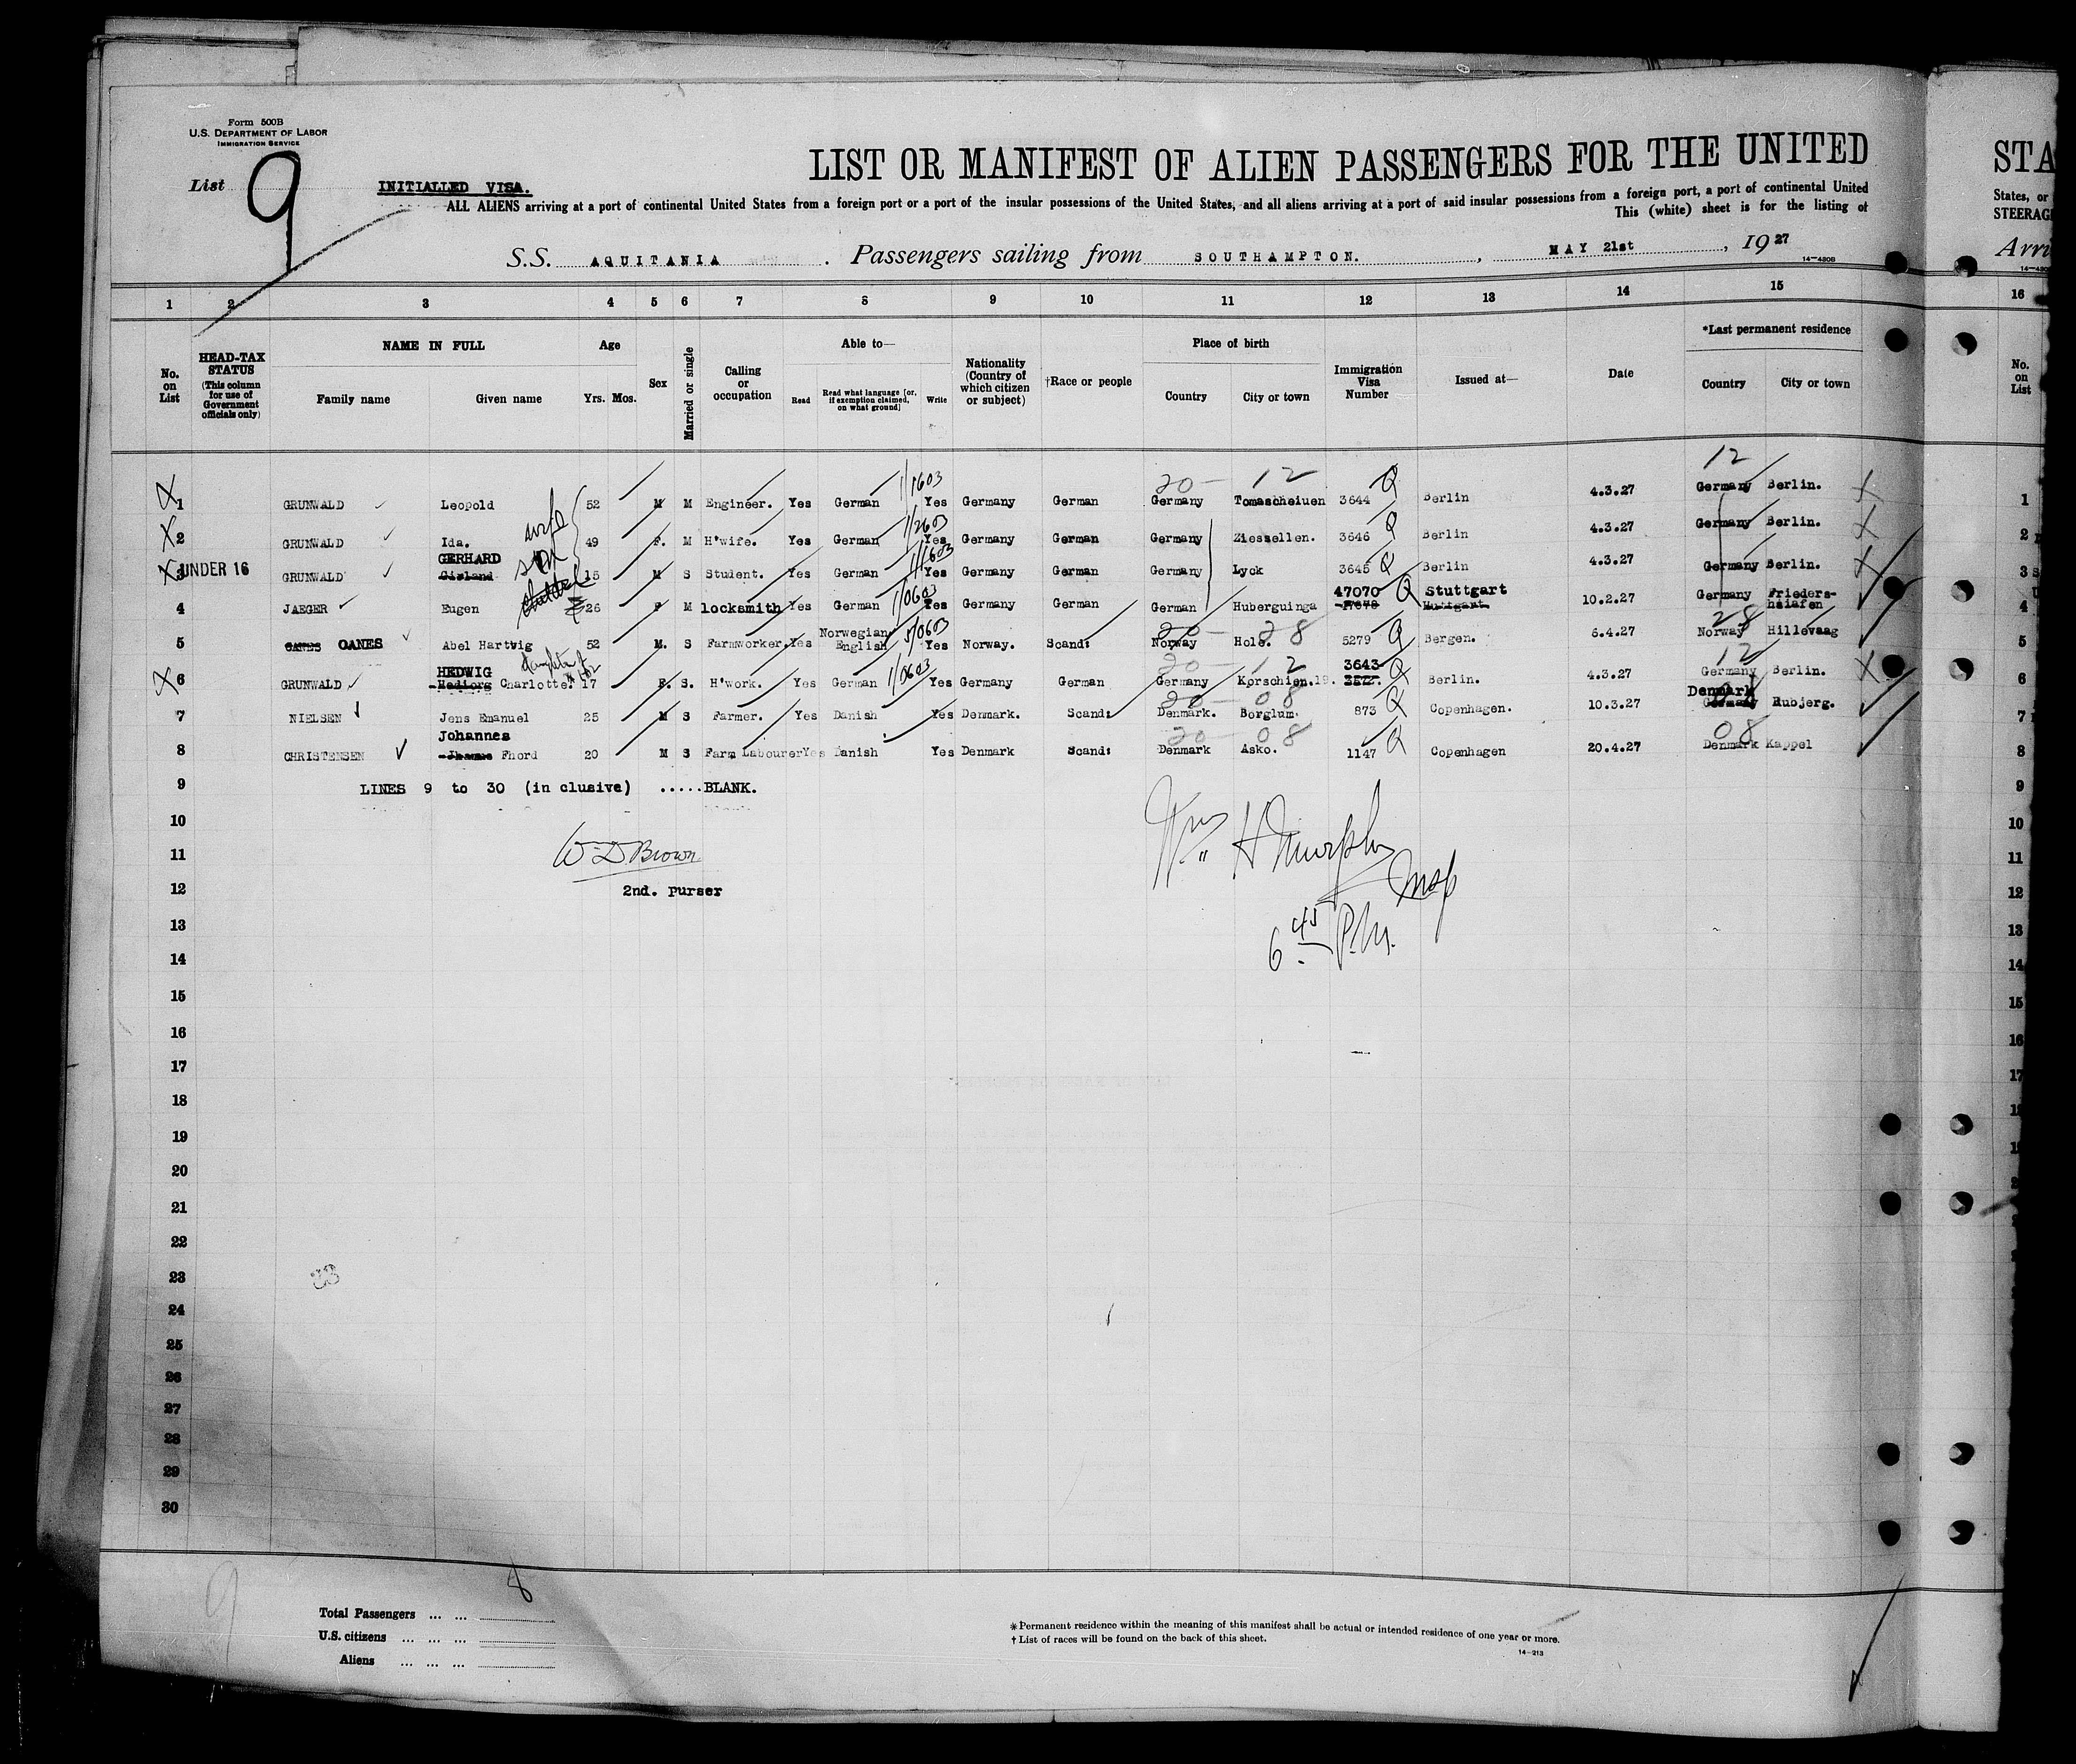 Form 500B
U.S. DEPARTMENT OF LABOR
IMMIGRATION SERVICE
List 9
INITIALLED VISA.
LIST OR MANIFEST OF ALIEN PASSENGERS FOR THE UNITED
STA
ALL ALIENS arriving at a port of continental United States from a foreign port or a port of the insular possessions of the United States, and all aliens arriving at a port of said insular possessions from a foreign port, a port of continental United
States, or
This (white) sheet is for the listing of
STEERAG
S.S. AQUITANIA . Passengers sailing from SOUTHAMPTON. , MAY 21st , 1927
Arri
14-430B
1 2 3 4 5 6 7 8 9 10 11 12 13 14 15 16
No. on List
HEAD-TAX STATUS (This column for use of Government officials only)
NAME IN FULL
Family name Given name
Age
Yrs. Mos.
Sex
Married or single
Calling or occupation
Able to—
Read Read what language [or, if exemption claimed, on what ground] Write
Nationality (Country of which citizen or subject)
†Race or people
Place of birth
Country City or town
Immigration Visa Number
Issued at—
Date
*Last permanent residence
Country City or town
No. on List
20- 12 12
1 GRUNWALD Leopold 52 M M Engineer. Yes German 1/1603 Yes Germany German Germany Tomascheiuen 3644 Q Berlin 4.3.27 Germany Berlin. 1
2 GRUNWALD Ida. wife 49 F. M H'wife. Yes German 1/2603 Yes Germany German Germany Ziessellen. 3646 Q Berlin 4.3.27 Germany Berlin. 2
GERHARD
3 UNDER 16 GRUNWALD Gisland son 15 M S Student. Yes German 1/1603 Yes Germany German Germany Lyck 3645 Q Berlin 4.3.27 Germany Berlin. 3
47070 Stuttgart
4 JAEGER Eugen 26 M locksmith Yes German 1/0603 Yes Germany German German Huberguinga Q 10.2.27 Germany Frieders-hsiafen 4
20- 28 28
5 OANES Abel Hartwig 52 M. S Farmworker. Yes Norwegian English 5/0603 Yes Norway. Scand: Norway Hole. 5279 Q Bergen. 6.4.27 Norway Hillevaag 5
HEDWIG daughter of 20- 12 3643 12
6 GRUNWALD Hediorg Charlotte. 17 F. S. H'work. Yes German 1/0603 Yes Germany German Germany Korschien. 19. Q Berlin. 4.3.27 Germany Berlin. 6
20- 08 Denmark
7 NIELSEN Jens Emanuel 25 M S Farmer. Yes Danish Yes Denmark. Scand: Denmark. Borglum. 873 Q Copenhagen. 10.3.27 Germany Rubjerg. 7
Johannes 20- 08 08
8 CHRISTENSEN Fhord 20 M S Farm Labourer Yes Danish Yes Denmark Scand: Denmark Asko. 1147 Q Copenhagen 20.4.27 Denmark Kappel 8
9 LINES 9 to 30 (in clusive) .....BLANK. 9
10 10
11 W. D. Brown Wm H Murphy Insp 11
12 2nd. purser 12
13 6 45 P.M. 13
14 14
15 15
16 16
17 17
18
19
20
21
22
23
24
25
26
27
28
29
30
8
Total Passengers ... ...
U.S. citizens ... ... ...
Aliens ... ... ...
9
*Permanent residence within the meaning of this manifest shall be actual or intended residence of one year or more.
†List of races will be found on the back of this sheet.
14-213